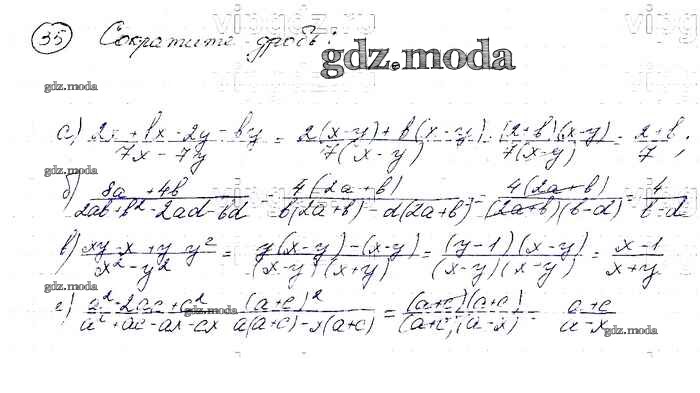 35 Сократите дробь:
gdz.moda
gdz.moda
а) 2x + bx - 2y - by / 7x - 7y = 2(x-y) + b(x-y) / 7(x-y) = (2+b)(x-y) / 7(x-y) = 2+b / 7;
б) 8a + 4b / 2ab + b² - 2ad - bd = 4(2a+b) / b(2a+b) - d(2a+b) = 4(2a+b) / (2a+b)(b-d) = 4 / b-d
в) xy - x + y - y² / x² - y² = y(x-y) - (x-y) / (x-y)(x+y) = (y-1)(x-y) / (x-y)(x-y) = x-1 / x+y
gdz.moda
г) a² + 2ac + c² / a² + ac - ax - cx = (a+c)² / a(a+c) - x(a+c) = (a+c)(a+c) / (a+c)(a-x) = a+c / a-x
gdz.moda
gdz.moda